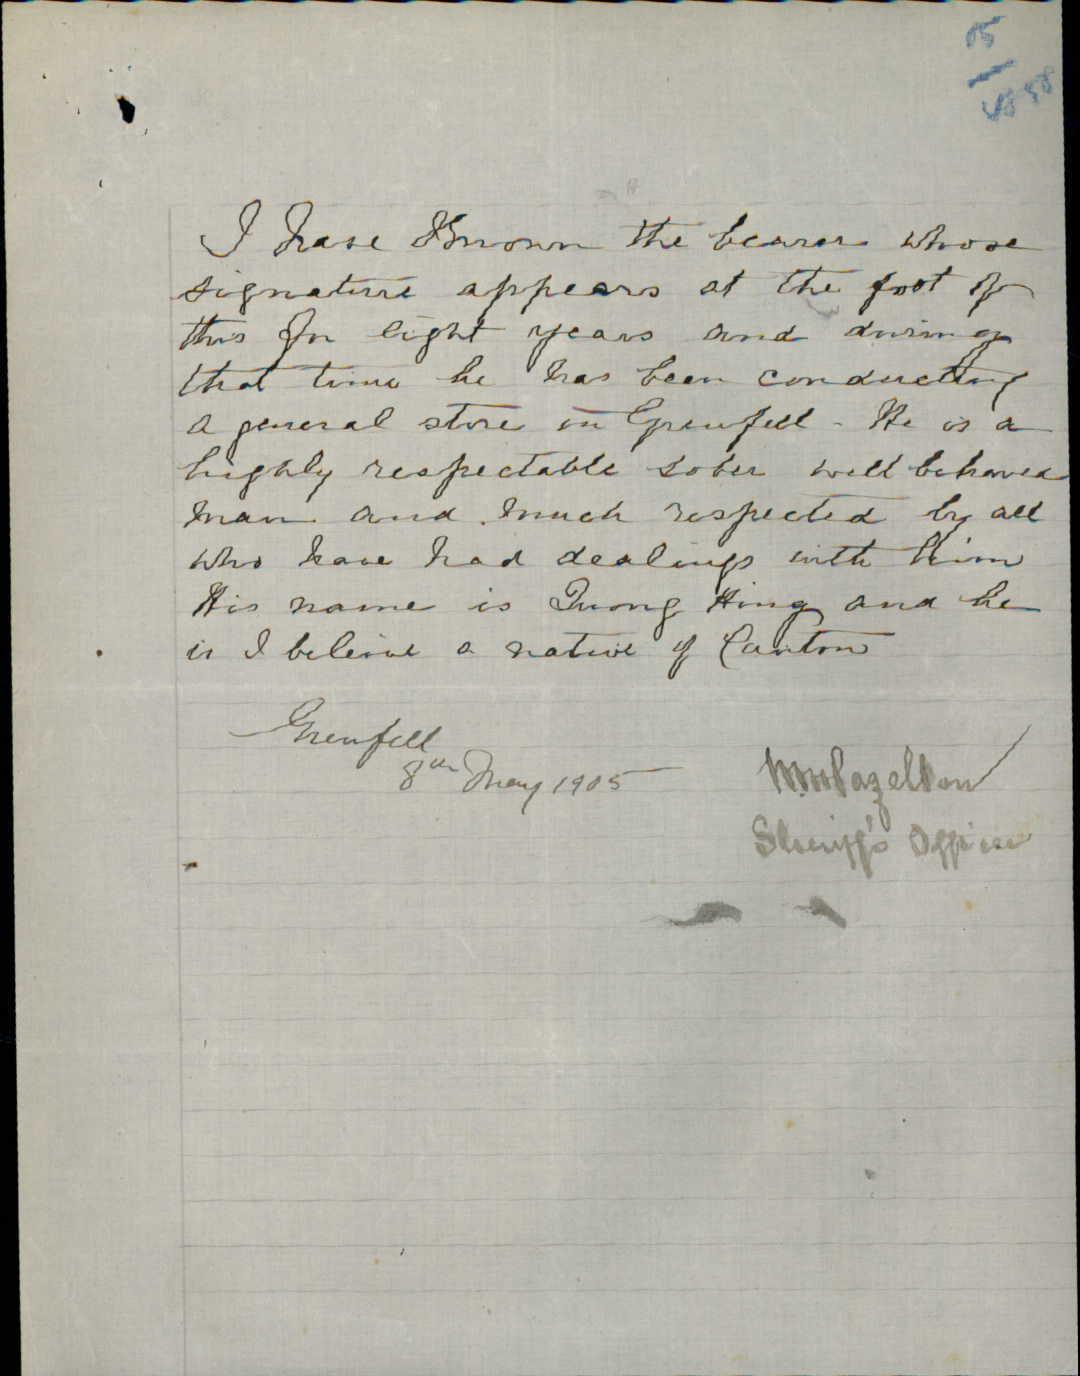 05
4858
I have Known the bearer whose
signature appears at the foot of
this for eight years and during
that time he has been conducting
a general store in Grenfell - He is a
highly respectable sober well behaved
man and much respected by all
who have had dealings with him
His name is Quong Hing and he
is I beleive a native of Canton
Grenfell
8th May 1905
Hazelton
Sheriff's Officer